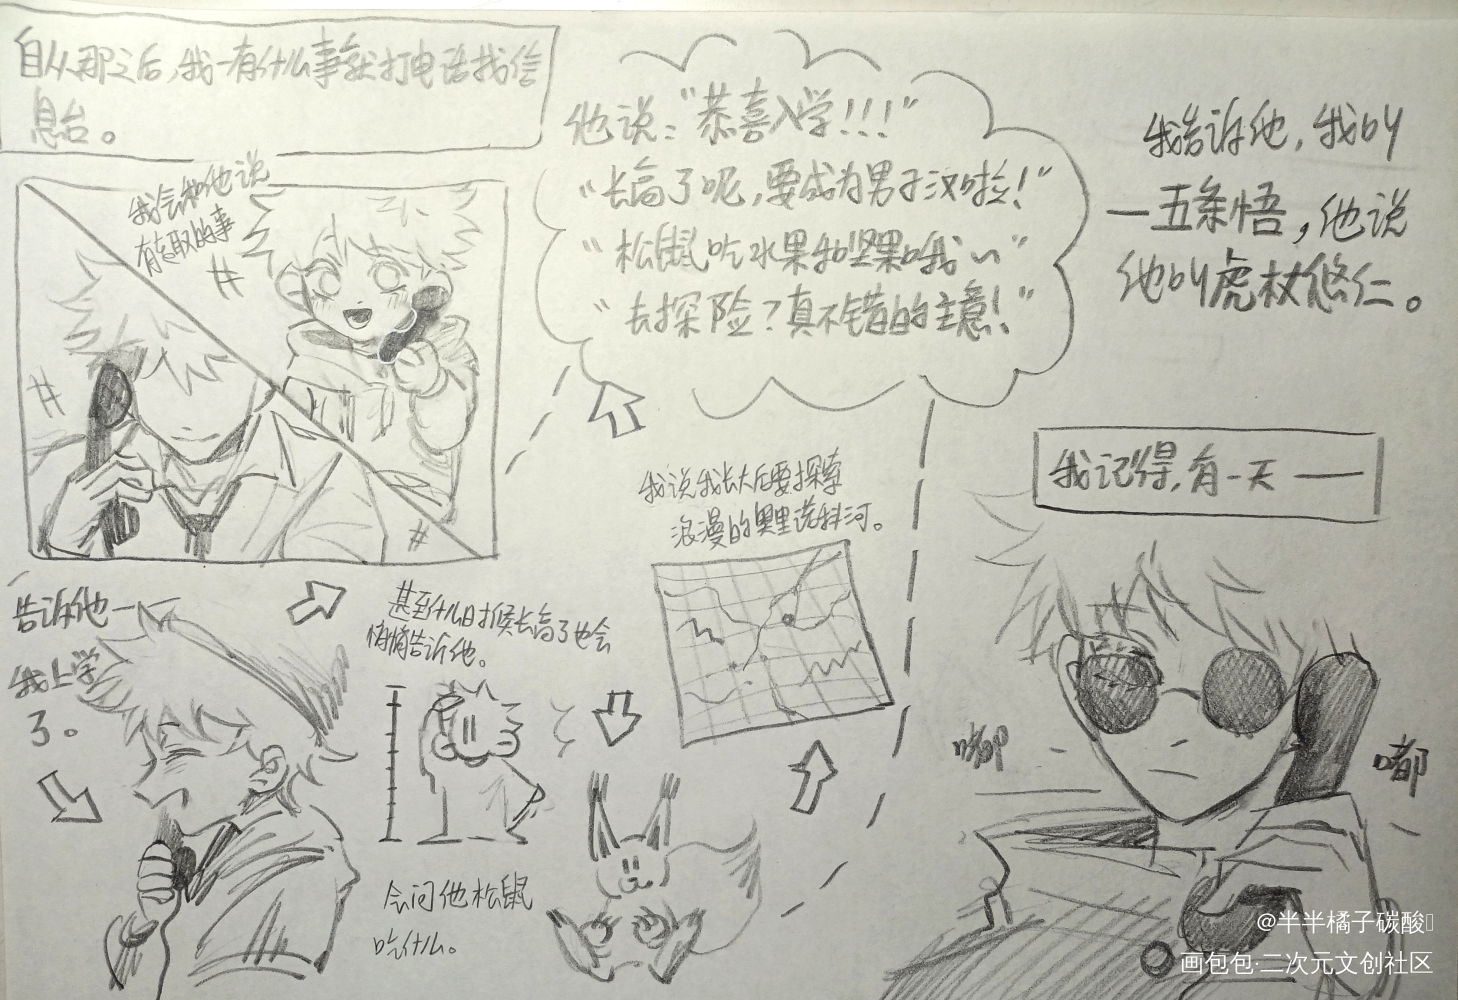 自从那之后,我一有什么事就打电话找信
息台。
我会和他说
有趣的事
他说:“恭喜入学!!!”
“长高了呢,要成为男子汉啦!”
“松鼠吃水果和坚果哦~”
“去探险?真不错的主意!”
我告诉他,我叫
一五条悟,他说
他叫虎杖悠仁。
告诉他一
我上学
了。
甚至什么时候长高了也会
悄悄告诉他。
会问他松鼠
吃什么。
我说我长大后要探索
浪漫的奥里诺科河。
我记得,有一天——
嘟
嘟
@半半橘子碳酸
画包包·二次元文创社区